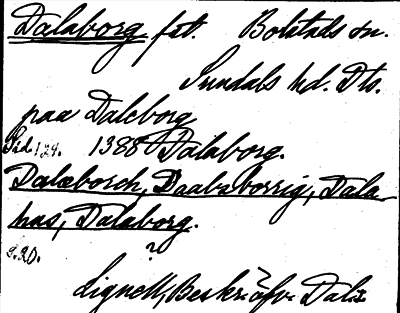 Dalaborg fst. Bolstads sn.
Sundals hd. Dls.
paa Daleborg
124. 1388 Dalaborg.
Dalæborch, Daabsborrig, Dala
hus, Dalaborg.
?
Lignell, Beskr. öfv. Dals